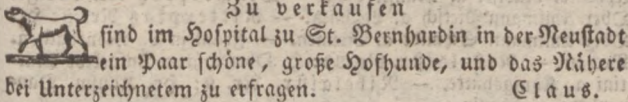 Zu verkaufen
ſind im Hoſpital zu St. Bernhardin in der Neuſtadt
ein Paar ſchöne, große Hofhunde, und das Nähere
bei Unterzeichnetem zu erfragen. Claus.